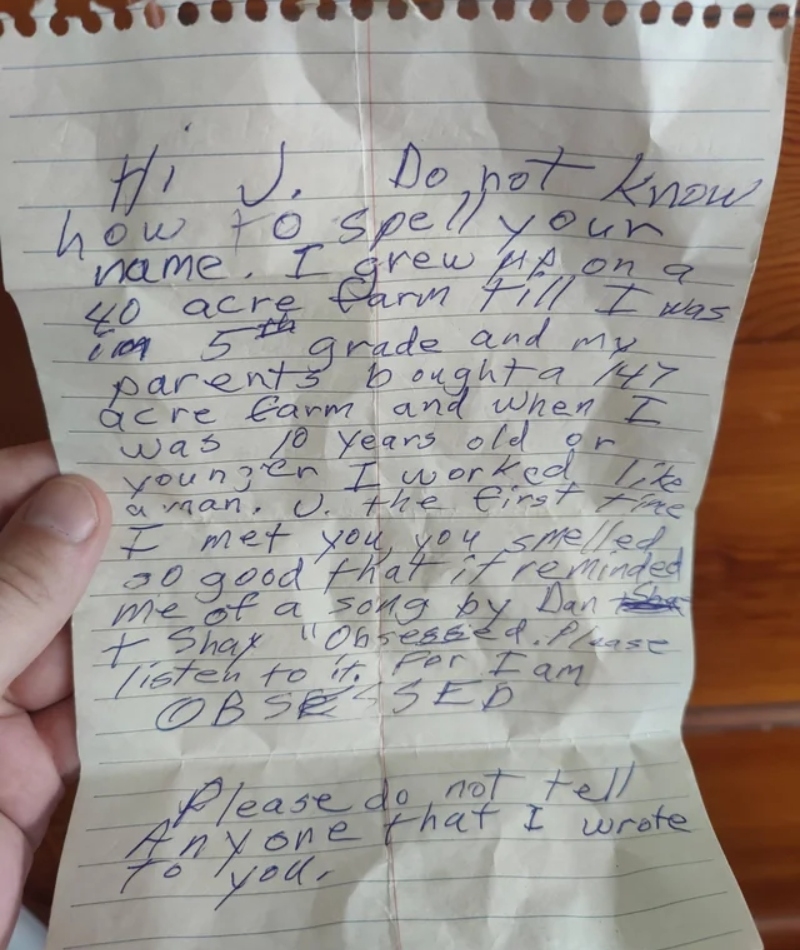 Hi J. Do not know
how to spell your
name. I grew up on a
40 acre farm till I was
in 5th grade and my
parents bought a 147
acre farm and when I
was 10 years old or
younger I worked like
a man. J. the first time
I met you, you smelled
so good that it reminded
me of a song by Dan
+ Shay "Obsessed. Please
listen to it. For I am
OBSESSED
Please do not tell
Anyone that I wrote
to you.